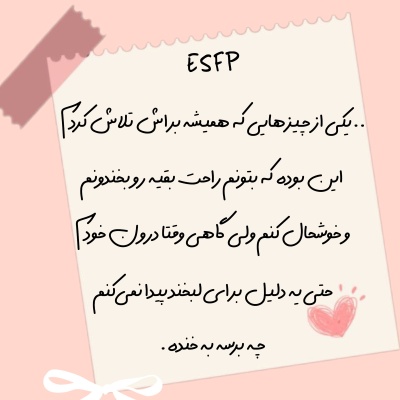 ESFP
..یکی از چیزهایی که همیشه براش تلاش کردم
این بوده که بتونم راحت بقیه رو بخندونم
و خوشحال کنم ولی گاهی وقتا درون خودم
حتی یه دلیل برای لبخند پیدا نمی‌کنم
چه برسه به خنده .